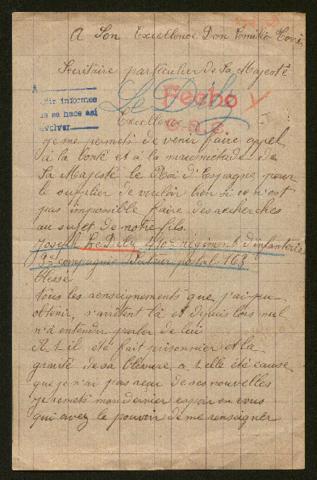 A Son Excellence Don Emilio
Secrétaire particulier de Sa Majesté
Fecho
Excellence
je me permets de venir faire appel
à la bonté et à la
Sa Majesté le Roi d'Espagne pour
le supplier de vouloir bien si ce n'est
pas impossible faire des recherches
au sujet de notre fils.
Joseph Le régiment d'infanterie
compagnie Secteur postal 169
blessé
tous les renseignements que j'ai pu
obtenir, s'arrêtent là et depuis lors nul
n'a entendu parler de lui
A t il été fait prisonnier et la
gravité de sa blessure, a t elle été cause
que je n'ai pas reçu de ses nouvelles
je remets mon dernier espoir en vous
qui avez le pouvoir de me renseigner